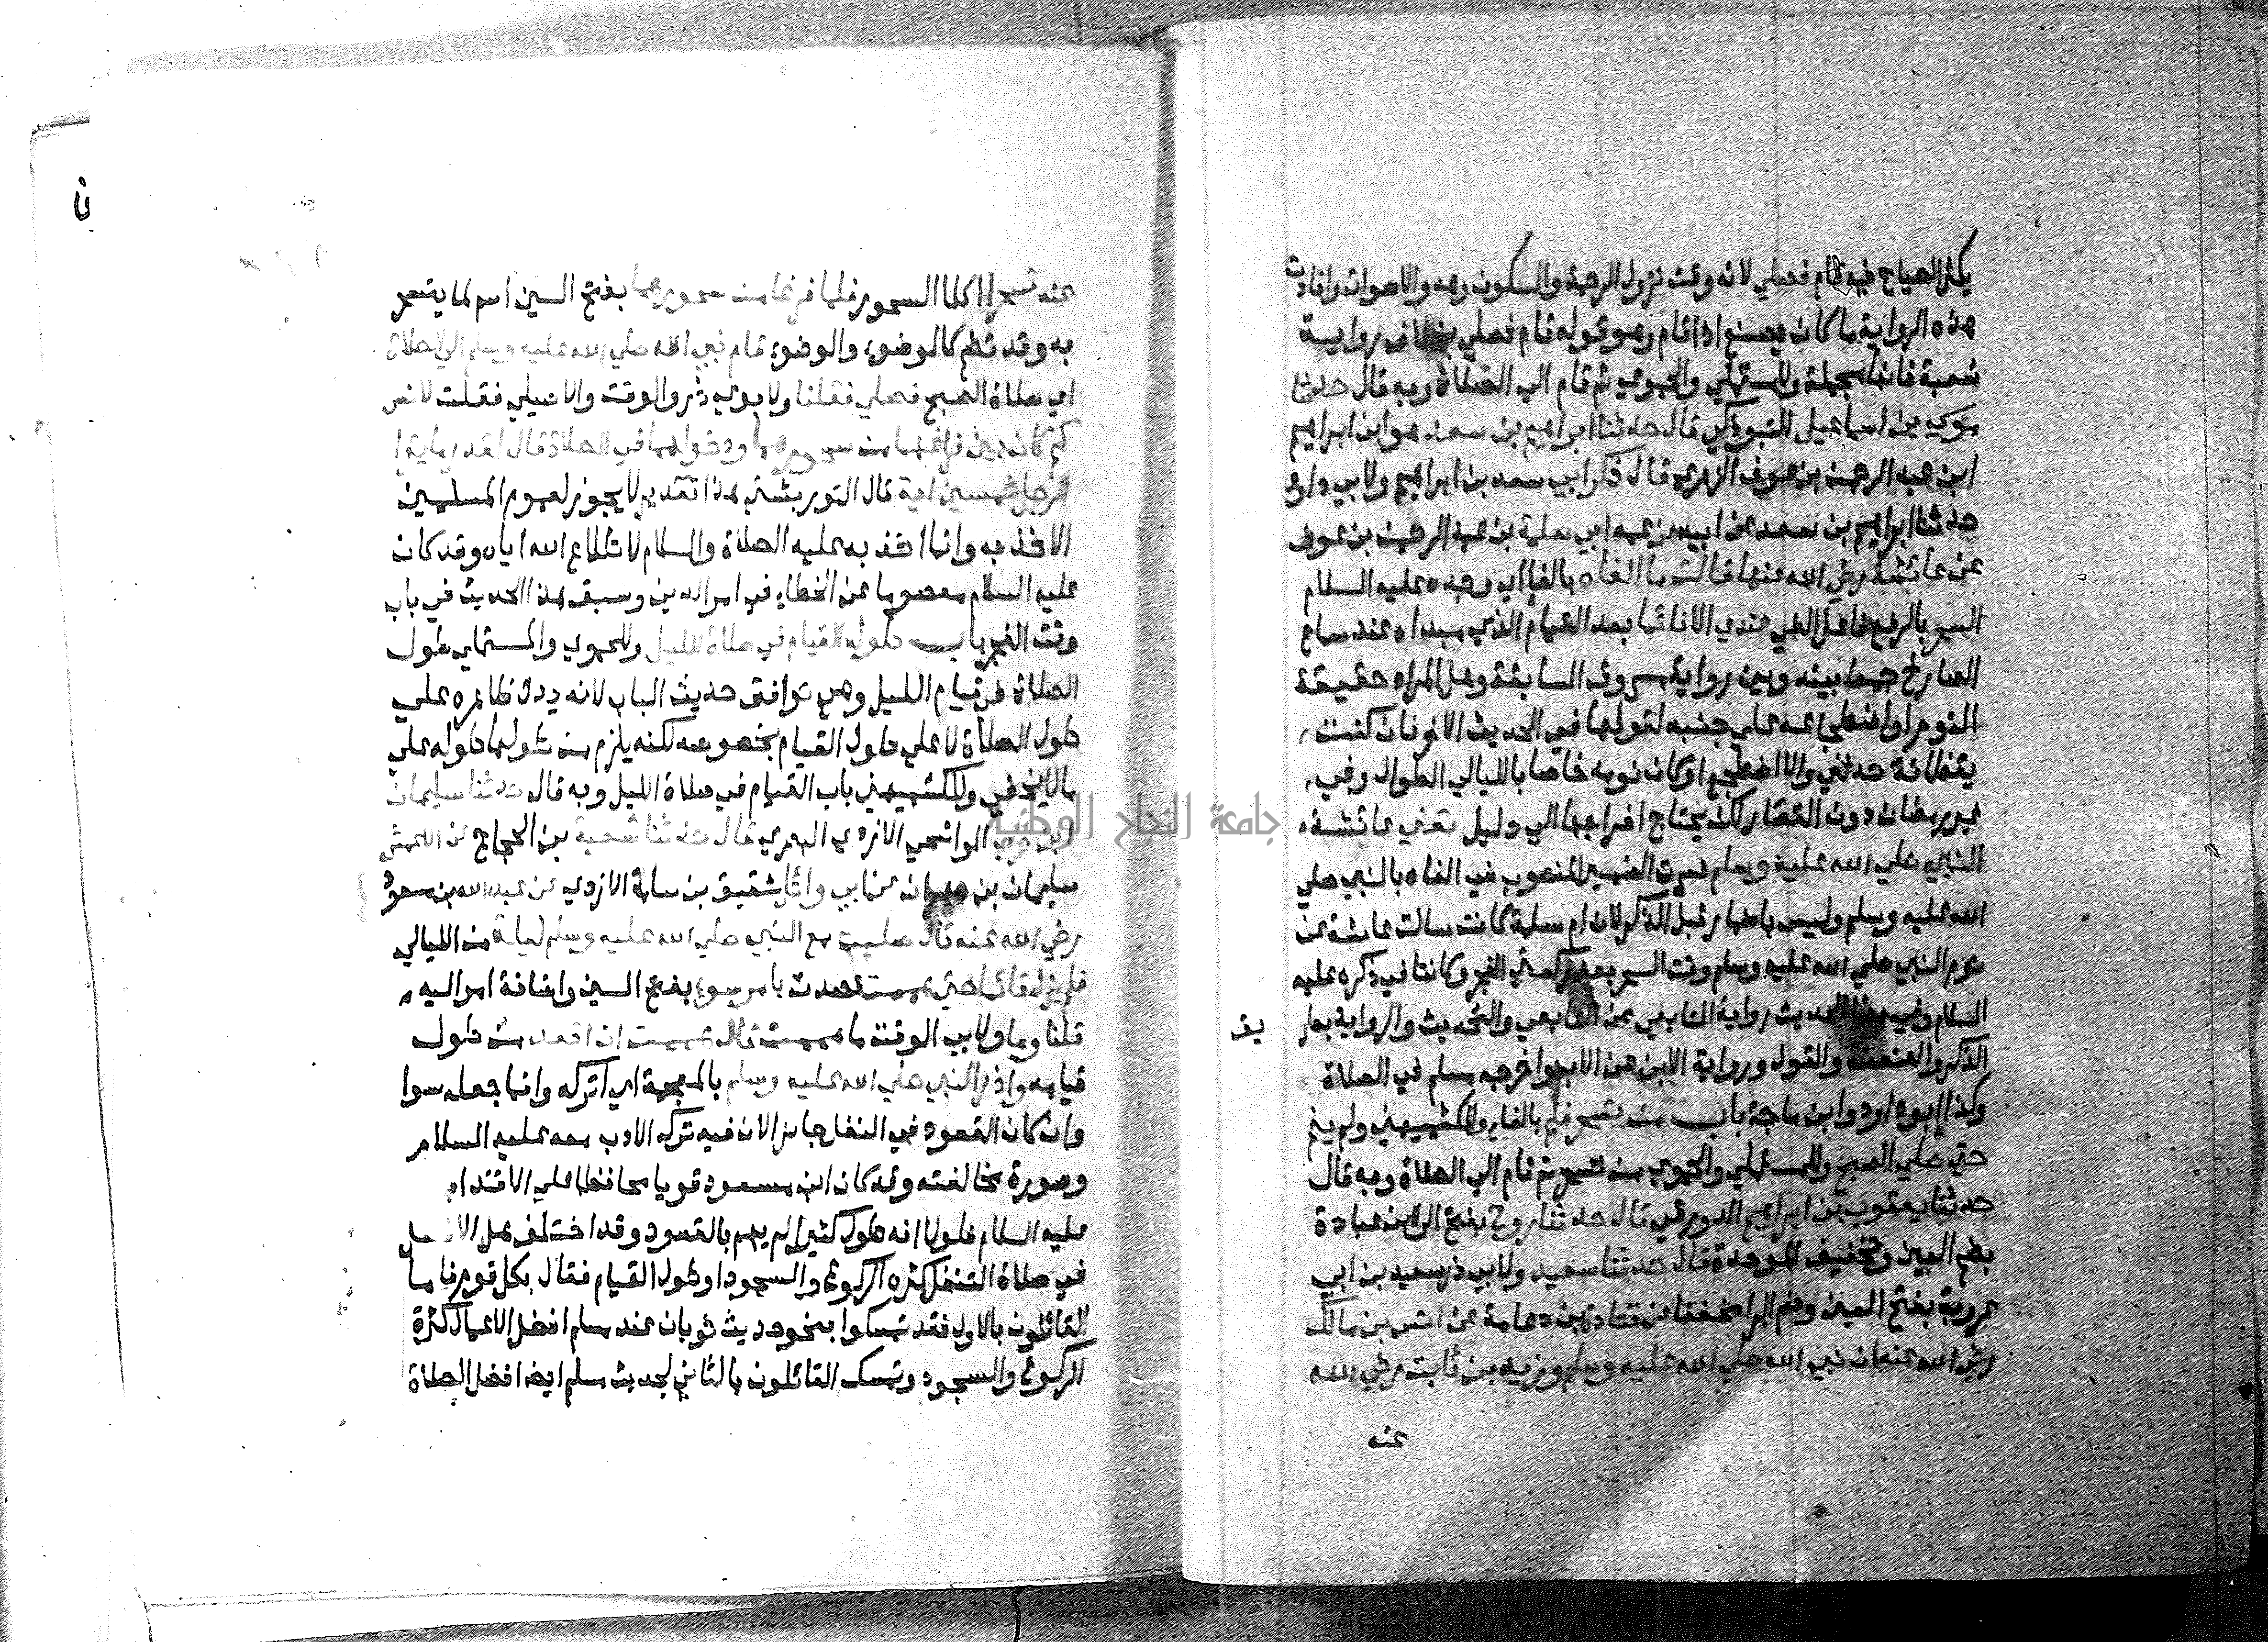 يكثر الصياح فيه قام فصلي لانه وقت نزول الرحمة والسكون وهدو الاصوات وافادت
هذه الرواية ما كان يصنع اذا قام وهو قوله قام فصلي بخلاف رواية
شعبة فانها مجملة وللمستملي والحموي ثم قام الي الصلاة وبه قال حدثنا
موسي بن اسماعيل التبوذكي قال حدثنا ابراهيم بن سعد هو ابن ابراهيم
ابن عبد الرحمن بن عوف الزهري قال ذكر ابي سعد بن ابراهيم ولابي داود
حدثنا ابراهيم بن سعد عن ابيه عن عمه ابي سلمة بن عبد الرحمن بن عوف
عن عائشة رضي الله عنها قالت ما الفاه بالفا اي وجده عليه السلام
السحر بالرفع فاعل الفي عندي الا نائما بعد القيام الذي مبداه عند سماع
الصارخ جمعا بينه وبين رواية مسروق السابقة وهل المراد حقيقة
النوم او اضطجاعه علي جنبه لقولها في الحديث الاخر فان كنت
يقظانة حدثني والا اضطجع او كان نومه خاصا بالليالي الطوال وفي
غير رمضان دون القصار لكن يحتاج اخراجها الي دليل تعني عائشة
النبي صلي الله عليه وسلم فسرت الضمير المنصوب في الفاه بالنبي صلي
الله عليه وسلم وليس باضمار قبل الذكر لان ام سلمة كانت سالت عائشة عن
نوم النبي صلي الله عليه وسلم وقت السحر بعد ركعتي الفجر وكانتا في ذكره عليه
السلام وفي هذا الحديث رواية التابعي عن التابعي والتحديث والرواية بطر
يق
الذكر والعنعنة والقول ورواية الابن عن الاب واخرجه مسلم في الصلاة
وكذا ابو داود وابن ماجة باب من تسحر فلم بالفاء وللكشميهني ولم ينم
حتي صلي الصبح وللمستملي والحموي من تسحر ثم قام الي الصلاة وبه قال
حدثنا يعقوب بن ابراهيم الدورقي قال حدثنا روح بفتح الرا ابن عبادة
بضم العين وتخفيف الموحدة قال حدثنا سعيد ولابي ذر سعيد بن ابي
عروبة بفتح العين وضم الرا مخففا عن قتادة بن دعامة عن انس بن مالك
رضي الله عنه ان نبي الله صلي الله عليه وسلم وزيد بن ثابت رضي الله
عنه
عنه تسحرا اكلا السحور فلما فرغا من سحورهما بفتح السين اسم لما يتسحر
به وقد تضم كالوضوء والوضوء قام نبي الله صلي الله عليه وسلم الي الصلاة
اي صلاة الصبح فصلي فقلنا ولابوي ذر والوقت والاصيلي فقلت لانس
كم كان بين فراغهما من سحورهما ودخولهما في الصلاة قال كقدر ما يقرا
الرجل خمسين اية قال التوربشتي هذا تقدير لا يجوز لعموم المسلمين
الاخذ به وانما اخذ به عليه الصلاة والسلام لاطلاع الله اياه وقد كان
عليه السلام معصوما عن الخطاء في امر الدين وسبق هذا الحديث في باب
وقت الفجر باب طول القيام في صلاة الليل وللحموي والمستملي طول
الصلاة في قيام الليل وهي توافق حديث الباب لانه يدل بظاهره علي
طول الصلاة لا علي طول القيام بخصوصه لكنه يلزم من طولها طوله علي
ما لا يخفي وللكشميهني باب القيام في صلاة الليل وبه قال حدثنا سليمان
ابن حرب الواشحي الازدي البصري قال حدثنا شعبة بن الحجاج عن الاعمش
سليمان بن مهران عن ابي وائل شقيق بن سلمة الازدي عن عبد الله بن مسعود
رضي الله عنه قال صليت مع النبي صلي الله عليه وسلم ليلة من الليالي
فلم يزل قائما حتي هممت قصدت بامر سوء بفتح السين واضافة امر اليه
قلنا وما ولابي الوقت ما هممت قال هممت ان اقعد من طول
قيامه واذر النبي صلي الله عليه وسلم بالمعجمة اي اتركه وانما جعله سوا
وان كان القعود في النفل جائز الان فيه ترك الادب معه عليه السلام
وصورة مخالفته وقد كان ابن مسعود قويا محافظا علي الاقتداء
عليه السلام فلولا انه طول كثيرا لم يهم بالقعود وقد اختلف هل الافضل
في صلاة التنفل كثرة الركوع والسجود او طول القيام فقال بكل قوم فاما
القائلون بالاول فقد تمسكوا بنحو حديث ثوبان عند مسلم افضل الاعمال كثرة
الركوع والسجود وتمسك القائلون بالثاني لحديث مسلم ايضا افضل الصلاة
جامعة النجاح الوطنية